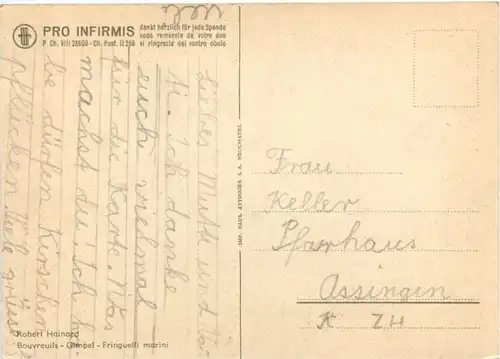 PRO INFIRMIS
P. Ch. VIII 23503 - Ch. Post. II 258
dankt herzlich für jede Spende
vous remercie de votre don
vi ringrazia del vostro obolo
Liebes Mutti und Va-
ti. Ich danke
euch vielmal
für die Karte. Was
machst du? Ich ha-
be dürfen Kirschen
pflücken. Viele grüsse
IMP. PAUL ATTINGER S.A. NEUCHATEL
Frau
Keller
Pfarrhaus
Assingen
K ZH
Robert Hainard
Bouvreuils - Gimpel - Fringuelli marini